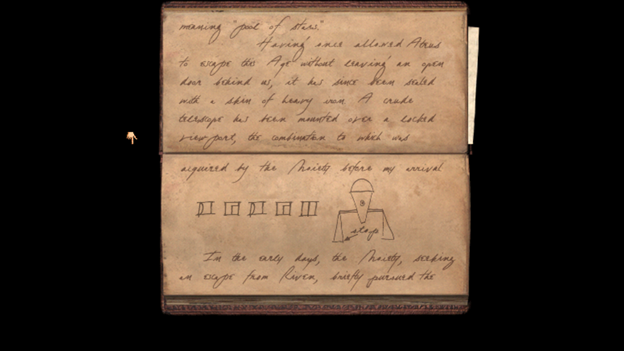 meaning "pool of stars"
Having once allowed Atrus
to escape this Age without leaving an open
door behind us, it has since been sealed
with a skin of heavy iron A crude
telescope has been mounted over a locked
viewport, the combination to which was
acquired by the Moiety before my arrival
stays
In the early days, the Moiety, seeking
an escape from Riven, briefly pursued the